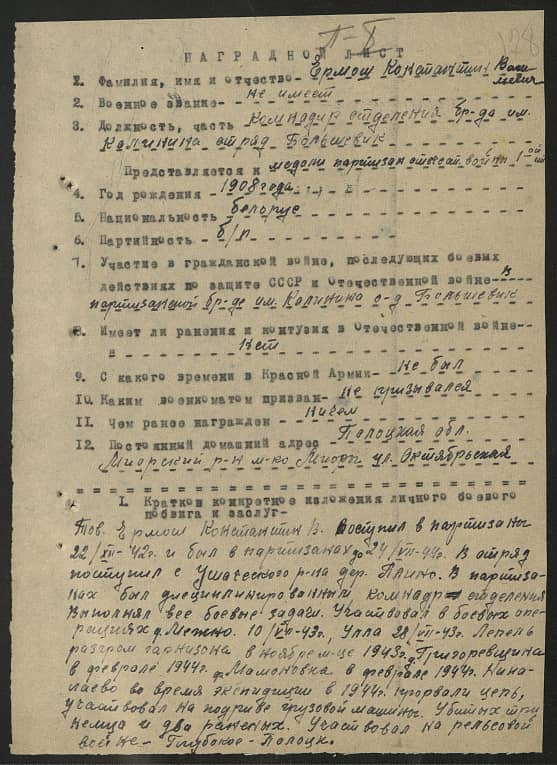 П-8
128
НАГРАДНОЙ ЛИСТ
1. Фамилия, имя и отчество- Ермош Константин Васильевич
2. Военное звание- не имеет
3. Должность, часть Командир отделения бр-да им.
Калинина отряд Большевик
Представляется к медали партизан отечест. войны I-ой ст
4. Год рождения - 1908 года
5. Национальность белорус
6. Партийность б/п
7. Участие в гражданской войне, последующих боевых
действиях по защите СССР и Отечественной войне- в
партизанской бр-де им. Калинина о-д Большевик
8. Имеет ли ранения и контузия в Отечественной войне--
Нет
9. С какого времени в Красной Армии- не был
10. Каким военкоматом призван- не призывался
11. Чем ранее награжден - Ничем
12. Постоянный домашний адрес Полоцкая обл.
Миорский р-н м-ко Миоры ул. Октябрьская
1. Краткое конкретное изложения личного боевого
подвига и заслуг-
Тов. Ермош Константин В. поступил в партизаны
22/VII-42г. и был в партизанах до 24/VII-44г. В отряд
поступил с Ушачского р-на дер. Плино. В партиза-
нах был дисциплинированным, командир отделения
Выполнял все боевые задачи. Участвовал в боевых опе-
рациях д. Межно. 10/VII-43г., Улла 28/VII-43г. Лепель
разгром гарнизона в ноябрем-це 1943г. д. Григоревщина
в феврале 1944г. д. Мамоновка в феврале 1944г. Нико-
лаево во время экспидиции в 1944г. прорвали цепь,
участвовал на подриве грузовой машины. Убитых три
немца и два раненых. Участвовал на рельсовой
войне - Глубокое - Полоцк.